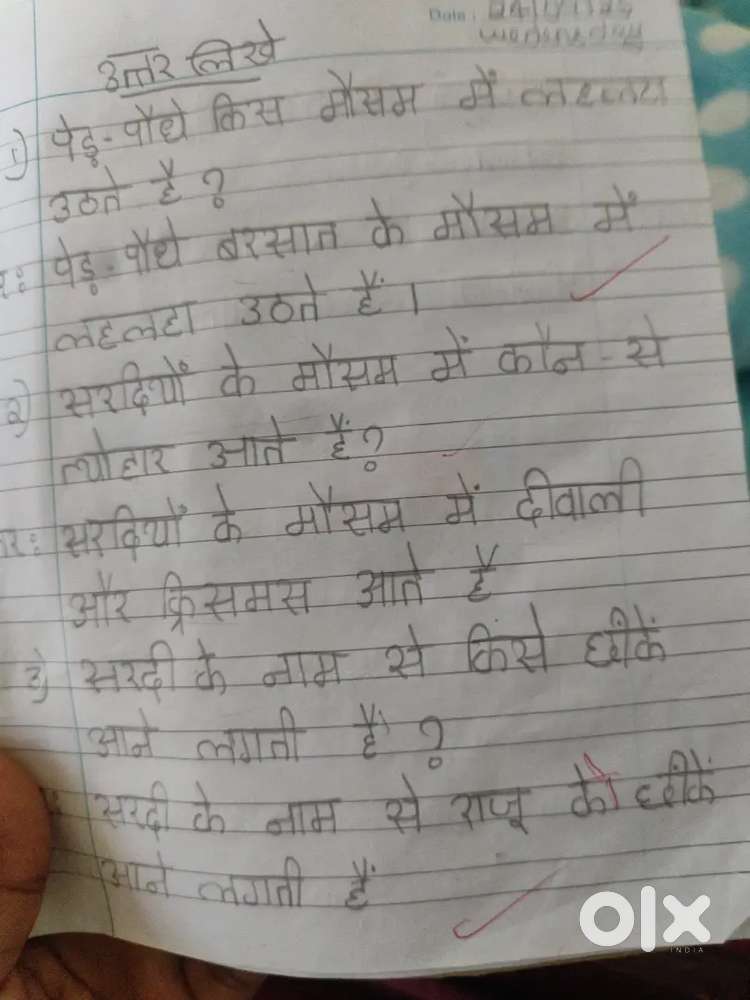 Date:
उत्तर लिखे
1) पेड़-पौधे किस मौसम में
उठते है ?
पेड़-पौधे बरसात के मौसम में
लहलहा उठते हैं।
2) सरदियों के मौसम में कौन-से
त्योहार आते हैं?
सरदियों के मौसम में दीवाली
और क्रिसमस आते है
3) सरदी के नाम से किसे छींकें
आने लगती हैं ?
सरदी के नाम से राजू को छींकें
आने लगती हैं
olx
INDIA